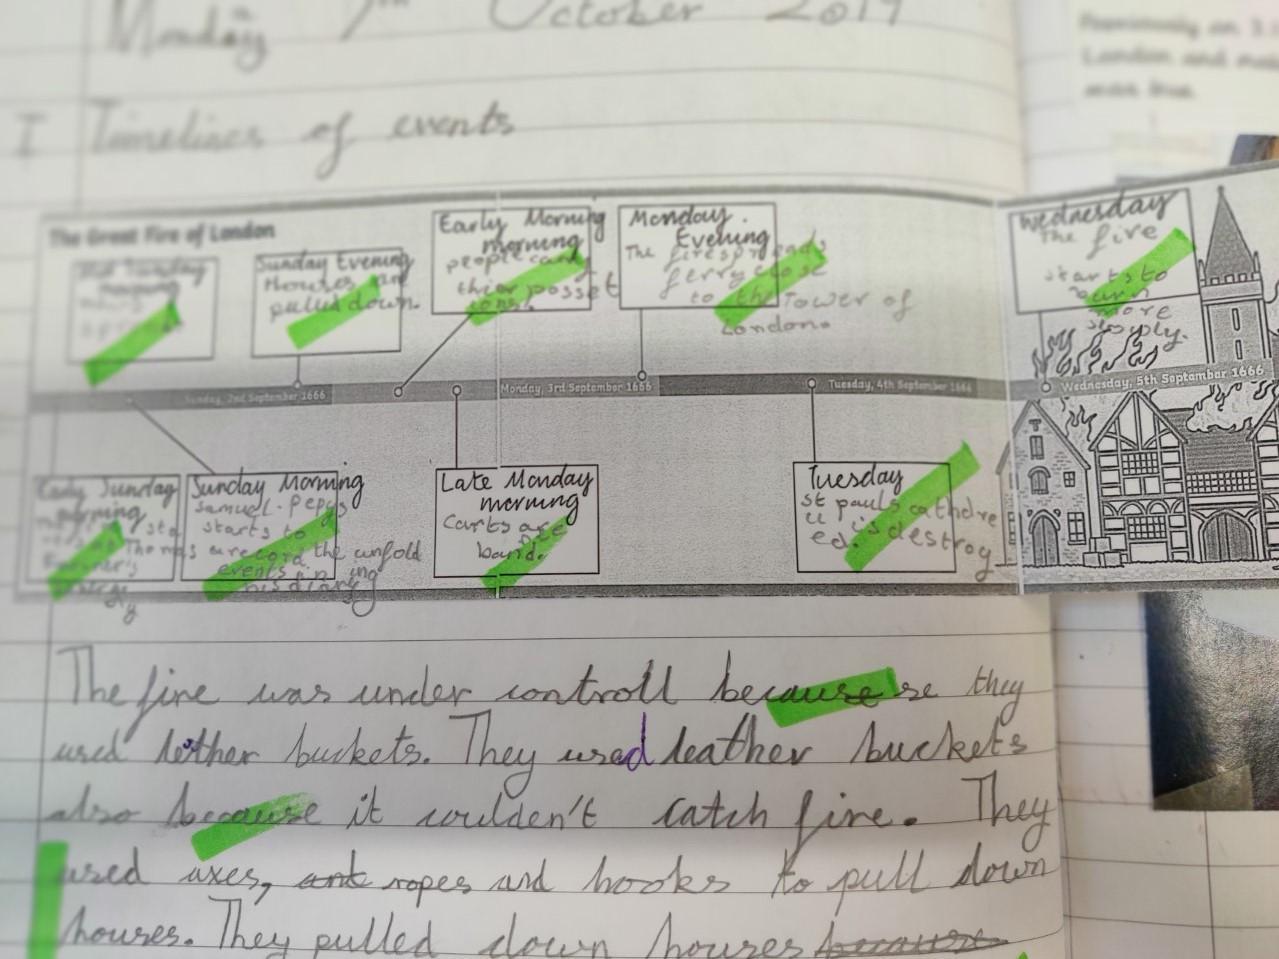 Monday 7th October 2019
I Timelines of events
The Great Fire of London
Sunday Evening
Houses are
pulled down.
Early Morning
morning
people carry
thier posset
ions.
Monday.
Evening
The fire spreads
ferry close
to the Tower of
London.
Wednesday
The fire
starts to
burn
more
slowly.
Sunday, 2nd September 1666
Monday, 3rd September 1666
Tuesday, 4th September 1666
Wednesday, 5th September 1666
Early Sunday
morning
Sunday Morning
Samuel. Pepys
starts to
record the unfold
events in ing
his diary
Late Monday
morning
Carts are
band.
Tuesday
st pauls cathdre
is destroy
ed.
The fire was under controll because they
used lether buckets. They used leather buckets
also because it couldn't catch fire. They
used axes, ant ropes and hooks to pull down
houses. They pulled down houses because
London and